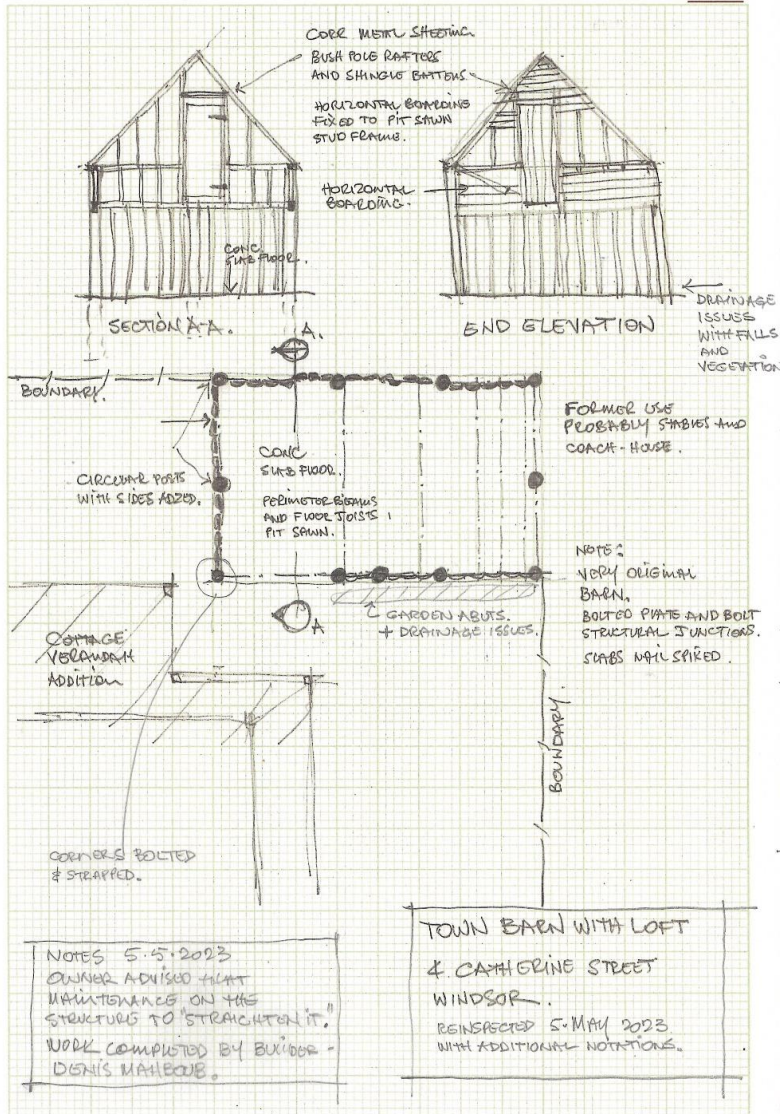 CORR METAL SHEETING
BUSH POLE RAFTERS
AND SHINGLE BATTENS
HORIZONTAL BOARDING
FIXED TO PIT SAWN
STUD FRAME.
HORIZONTAL
BOARDING.
CONC
SLAB FLOOR.
SECTION A-A.
END ELEVATION
DRAINAGE
ISSUES
WITH FALLS
AND
VEGETATION
A.
BOUNDARY.
FORMER USE
PROBABLY STABLES AND
COACH-HOUSE.
CIRCULAR POSTS
WITH SIDES ADZED.
CONC
SLAB FLOOR.
PERIMETER BEAMS
AND FLOOR JOISTS
PIT SAWN.
NOTE:
VERY ORIGINAL
BARN.
BOLTED PLATE AND BOLT
STRUCTURAL JUNCTIONS.
SLABS NAIL SPIKED.
GARDEN ABUTS.
+ DRAINAGE ISSUES.
A
COTTAGE
VERANDAH
ADDITION
BOUNDARY.
CORNERS BOLTED
& STRAPPED.
NOTES 5.5.2023
OWNER ADVISED THAT
MAINTENANCE ON THE
STRUCTURE TO "STRAIGHTEN IT."
WORK COMPLETED BY BUILDER -
DENIS MAHBOUB.
TOWN BARN WITH LOFT
CATHERINE STREET
WINDSOR.
REINSPECTED 5. MAY 2023
WITH ADDITIONAL NOTATIONS.